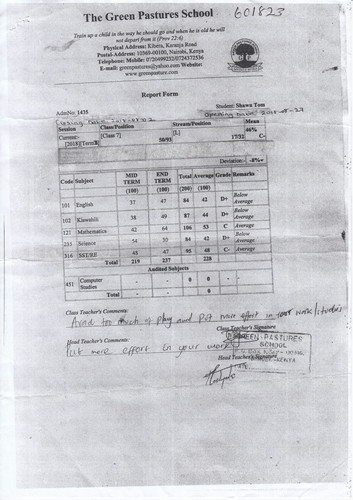 The Green Pastures School
601823
Train up a child in the way he should go and when he is old he will
not depart from it (Prov 22:6)
Physical Address: Kibera, Karanja Road
Postal-Address: 10369-00100, Nairobi, Kenya
Telephone: Mobile: 0720499232/0724372536
E-mail: greenpastures@yahoo.com Website:
www.greenpasture.com
Report Form
AdmNo: 1435
Student: Shawn Tom
Session Class/Position Stream/Position Mean
Current- [Class 7] [L] 46%
50/93 17/32 C-
Deviation:- -8%
Code Subject MID TERM END TERM Total Average Grade Remarks
(100) (100) (200) (100)
101 English 37 47 84 42 D+ Below Average
102 Kiswahili 38 49 87 44 D+ Below Average
121 Mathematics 42 64 106 53 C Average
235 Science 54 30 84 42 D+ Below Average
316 SST/RE 48 47 95 48 C- Average
Total 219 237 228
Audited Subjects
451 Computer Studies - - 0 0 - -
Total 0
Class Teacher's Comments:
Avoid too much of play and put more effort in your work/studies
Class Teacher's Signature
Head Teacher's Comments:
Put more effort in your work
GREEN PASTURES
SCHOOL
Head Teacher's Signature